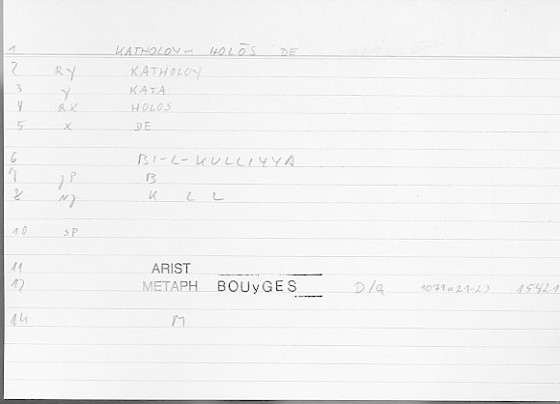 1 KATHOLOY- HOLŌS DE
2 RY KATHOLOY
3 Y KATA
4 RX HOLOS
5 X DE
6 BI-L-KULLIYYA
7 JP B
8 NJ K L L
10 SP
11 ARIST
12 METAPH BOUyGES D/Q 1071a21-23 1542.1
14 M